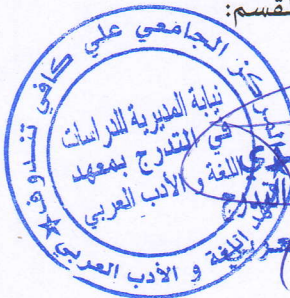 القسم:
المركز الجامعي علي كافي تندوف
نيابة المديرية للدراسات
في التدرج بمعهد
اللغة و الأدب العربي
معهد اللغة و الأدب العربي